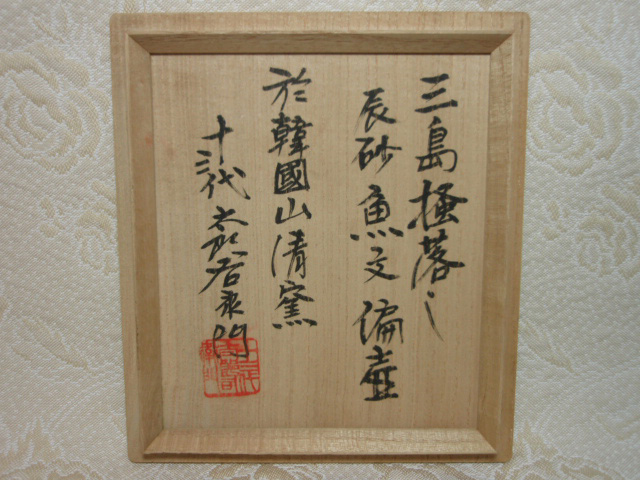 三島掻落し
辰砂魚文偏壷
於韓國山清窯
十三代太郎右衛門